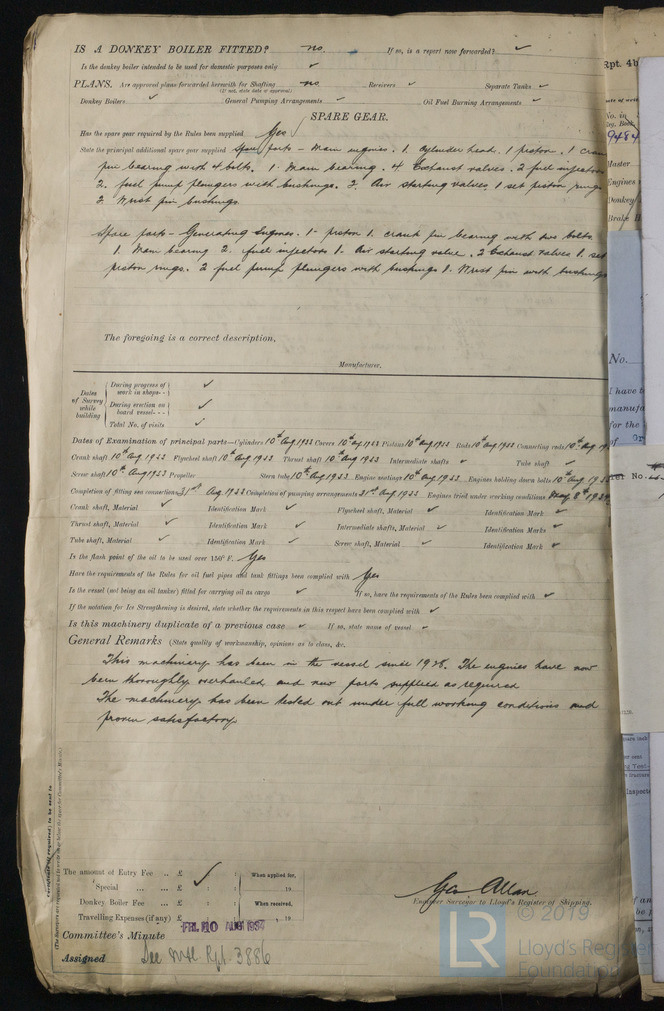 IS A DONKEY BOILER FITTED? no. If so, is a report now forwarded? ✓
Is the donkey boiler intended to be used for domestic purposes only ✓
PLANS. Are approved plans forwarded herewith for Shafting no Receivers ✓ Separate Tanks ✓
(If not, state date of approval)
Donkey Boilers ✓ General Pumping Arrangements ✓ Oil Fuel Burning Arrangements ✓
SPARE GEAR.
Has the spare gear required by the Rules been supplied Yes
State the principal additional spare gear supplied Spare parts - Main engines. 1. cylinder head. 1 piston. 1 cran
pin bearing with 4 bolts. 1. Main bearing. 4 Exhaust valves. 2 fuel injectors
2. fuel pump plungers with bushings. 2. Air starting valves 1 set piston rings
2 Wrist pin bushings.
Spare parts - Generating Engines. 1- piston 1. crank pin bearing with two bolts
1. Main bearing 2. fuel injectors 1- Air starting valve. 2 Exhaust valves 1. set
piston rings. 2 fuel pump plungers with bushings 1. Wrist pin with bushings
The foregoing is a correct description,
Manufacturer.
Dates of Survey while building
During progress of work in shops-- ✓
During erection on board vessel--- ✓
Total No. of visits ✓
Dates of Examination of principal parts—Cylinders 10th Aug 1933 Covers 10th Aug 1933 Pistons 10th Aug 1933 Rods 10th Aug 1933 Connecting rods 10th Aug 19
Crank shaft 10th Aug 1933 Flywheel shaft 10th Aug 1933 Thrust shaft 10th Aug 1933 Intermediate shafts ✓ Tube shaft ✓
Screw shaft 10th Aug 1933 Propeller Stern tube 10th Aug 1933 Engine seatings 10th Aug 1933 Engines holding down bolts 10th Aug 1933
Completion of fitting sea connections 31st Aug 1933 Completion of pumping arrangements 31st Aug 1933 Engines tried under working conditions 8th 1934
Crank shaft, Material ✓ Identification Mark ✓ Flywheel shaft, Material ✓ Identification Mark ✓
Thrust shaft, Material ✓ Identification Mark ✓ Intermediate shafts, Material ✓ Identification Marks ✓
Tube shaft, Material ✓ Identification Mark ✓ Screw shaft, Material ✓ Identification Mark ✓
Is the flash point of the oil to be used over 150° F. Yes
Have the requirements of the Rules for oil fuel pipes and tank fittings been complied with Yes
Is the vessel (not being an oil tanker) fitted for carrying oil as cargo ✓ If so, have the requirements of the Rules been complied with ✓
If the notation for Ice Strengthening is desired, state whether the requirements in this respect have been complied with ✓
Is this machinery duplicate of a previous case ✓ If so, state name of vessel ✓
General Remarks (State quality of workmanship, opinions as to class, &c.
This machinery has been in the vessel since 1928. The engines have now
been thoroughly overhauled and new parts supplied as required
The machinery has been tested out under full working conditions and
proven satisfactory.
Certificate (if required) to be sent to
The amount of Entry Fee .. £ ✓ : : When applied for,
Special ... ... £ : : 19
Donkey Boiler Fee ... £ : : When received,
Travelling Expenses (if any) £ : : 19
Geo Allan
Engineer Surveyor to Lloyd's Register of Shipping.
FRI. 10 AUG 1934
Committee's Minute
Assigned See Mtl. Rpt. 3886
Rpt. 4b
No. in
Reg. Book
9484
Master
Engines
Donkey
Brake H
No.
I have t
manufa
for the
No.
© 2019
Lloyd's Register
Foundation
LR